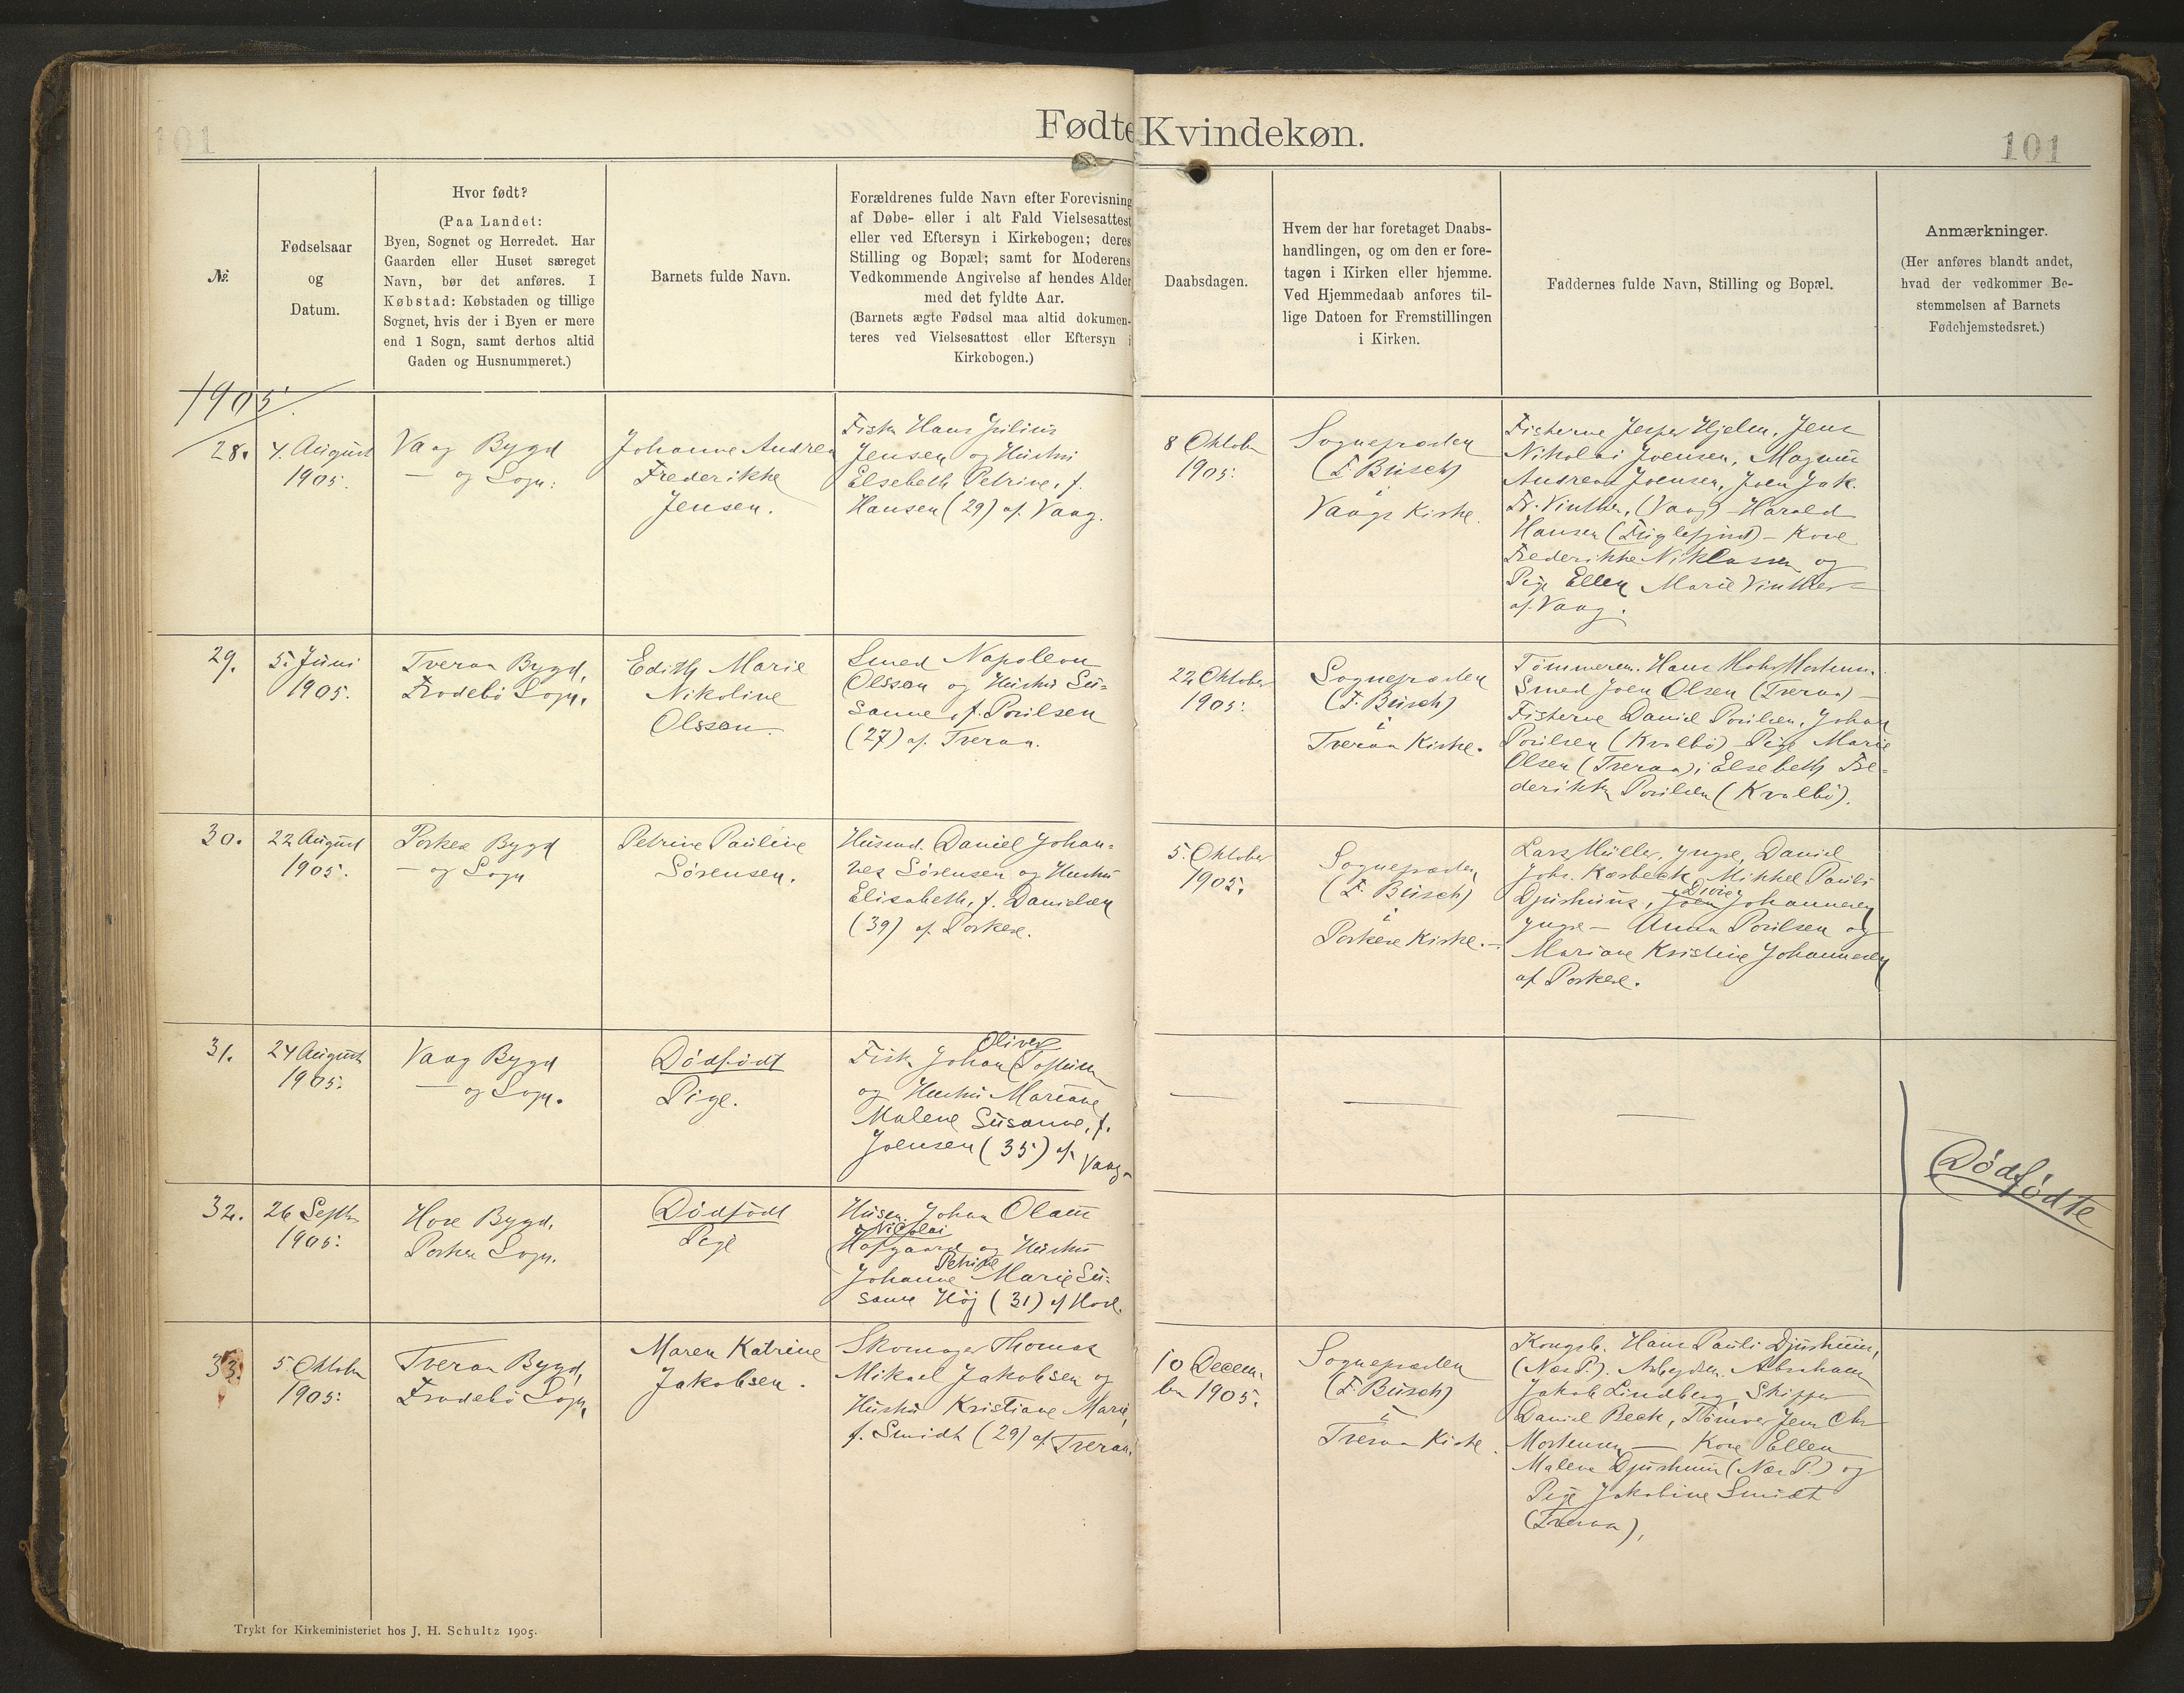 101
Fødte Kvindekøn.
101
№
Fødselsaar
og
Datum.
Hvor født?
(Paa Landet:
Byen, Sognet og Herredet. Har
Gaarden eller Huset særeget
Navn, bør det anføres. I
Købstad: Købstaden og tillige
Sognet, hvis der i Byen er mere
end 1 Sogn, samt derhos altid
Gaden og Husnummeret.)
Barnets fulde Navn.
Forældrenes fulde Navn efter Forevisning
af Døbe- eller i alt Fald Vielsesattest
eller ved Eftersyn i Kirkebogen; deres
Stilling og Bopæl; samt for Moderens
Vedkommende Angivelse af hendes Alder
med det fyldte Aar.
(Barnets ægte Fødsel maa altid dokumen-
teres ved Vielsesattest eller Eftersyn i
Kirkebogen.)
Daabsdagen.
Hvem der har foretaget Daabs-
handlingen, og om den er fore-
tagen i Kirken eller hjemme.
Ved Hjemmedaab anføres til-
lige Datoen for Fremstillingen
i Kirken.
Faddernes fulde Navn, Stilling og Bopæl.
Anmærkninger.
(Her anføres blandt andet,
hvad der vedkommer Be-
stemmelsen af Barnets
Fødehjemstedsret.)
1905.
28.
4. August
1905.
Vaag Bygd
— og Sogn.
Johanne Andrea
Frederikke
Jensen.
Fisker Hans Julius
Jensen og Hustru
Elsebeth Petrine, f.
Hansen (29) af Vaag.
8 Oktober
1905.
Sognepræsten
(F. Busch)
i
Vaags Kirke.
Fiskerne Jesper Hjelm, Jens
Nikolai Joensen, Magnus
Andreas Joensen, Joen Jak.
Fr. Vinther, (Vaag) Harald
Hansen (Fuglefjord) - Kone
Frederikke Niklassen og
Pige Ellen Marie Vinther
af Vaag.
29.
5. Juni
1905.
Tveraa Bygd,
Frodebø Sogn.
Edith Marie
Nikoline
Olsson.
Smed Napoleon
Olsson og Hustru Su-
sanne, f. Poulsen
(27) af Tveraa.
22 Oktober
1905.
Sognepræsten
(F. Busch)
i
Tveraa Kirke.
Tømmerm. Hans Mortens.
Smed Joen Olsen (Tveraa) -
Fiskerne Daniel Poulsen, Johan
Poulsen (Kvalbø) Pige Marie
Olsen (Tveraa), Elsebeth Fre-
derikke Poulsen (Kvalbø).
30.
22 August
1905.
Porkere Bygd
— og Sogn
Petrine Pauline
Sørensen.
Husmd. Daniel Johan-
nes Sørensen og Hustru
Elisabeth, f. Danielsen
(39) af Porkere.
5. Oktober
1905.
Sognepræsten
(F. Busch)
i
Porkere Kirke.
Lars Müller, yngre, Daniel
Johs. Kærbech, Mikkel Pauli
Djurhuus, Johannesen
yngre - Anna Poulsen og
Mariane Kristine Johannesen
af Porkere.
31.
24 August
1905.
Vaag Bygd
— og Sogn.
Dødfødt
Pige.
Oliver
Fisk. Johan
og Hustru Mariane
Malene Susanne, f.
Joensen (35) af Vaag.
Dødfødte
32.
26 Septbr.
1905.
Hove Bygd,
Porkere Sogn.
Dødfødt
Pige
Husm. Johan Olaus
Nicolai
Hofgaard og Hustru
Petrine
Johanne Marie Su-
sanne Høj (31) af Hove.
33.
5. Oktober
1905.
Tveraa Bygd,
Frodebø Sogn.
Maren Katrine
Jakobsen.
Skomager Thomas
Mikael Jakobsen og
Hustru Kristiane Marie,
f. Smidt (29) af Tveraa.
10 Decem-
ber 1905.
Sognepræsten
(F. Busch)
i
Tveraa Kirke.
Kongsb. Hans Pauli Djurhuus,
(Næs P.). Abraham
Jakob Lindberg, Skipper
Daniel Beck, Tømrer Jens Chr.
Mortensen — Kone Ellen
Malene Djurhuus (Næs P.) og
Pige Jakobine Smidt
(Tveraa).
Trykt for Kirkeministeriet hos J. H. Schultz 1905.